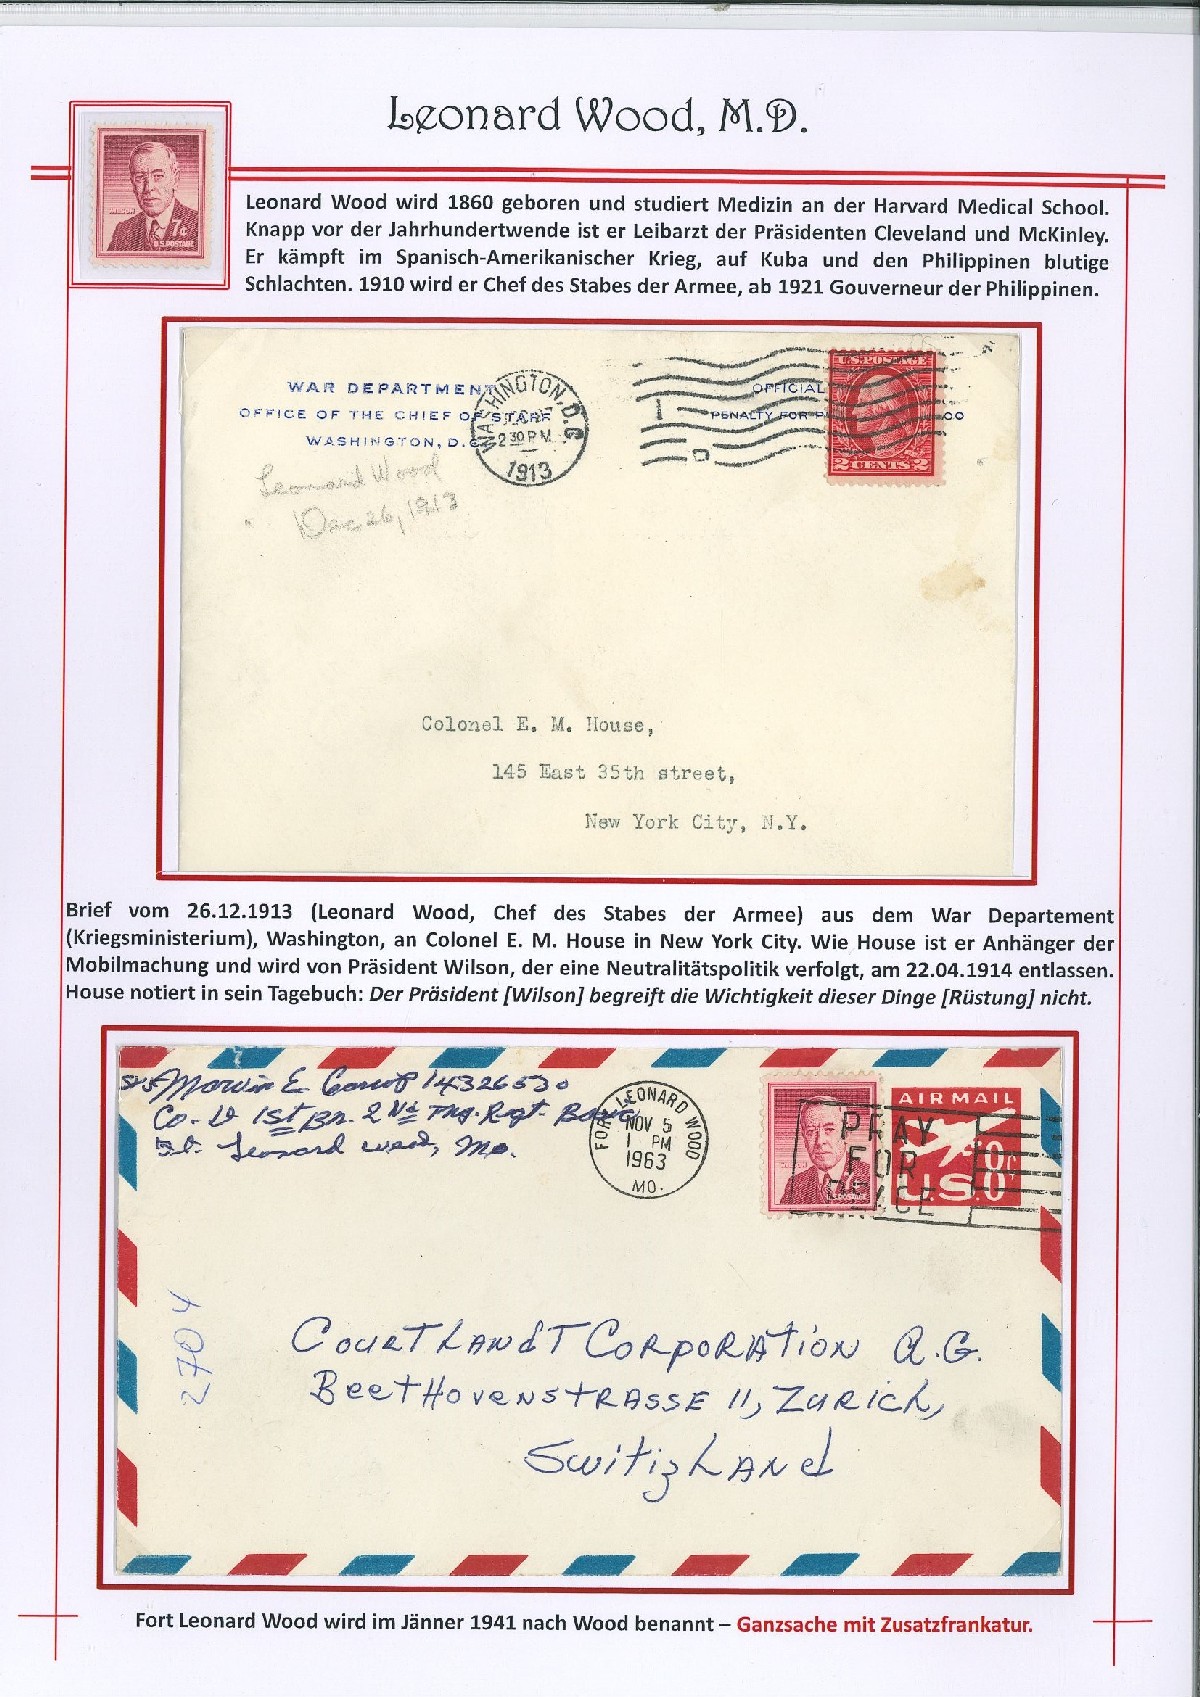 Leonard Wood, M.D.
WILSON
7¢
U.S. POSTAGE
Leonard Wood wird 1860 geboren und studiert Medizin an der Harvard Medical School.
Knapp vor der Jahrhundertwende ist er Leibarzt der Präsidenten Cleveland und McKinley.
Er kämpft im Spanisch-Amerikanischer Krieg, auf Kuba und den Philippinen blutige
Schlachten. 1910 wird er Chef des Stabes der Armee, ab 1921 Gouverneur der Philippinen.
WAR DEPARTMENT
OFFICE OF THE CHIEF OF STAFF
WASHINGTON, D.C.
WASHINGTON, D.C.
2 30 PM
1913
OFFICIAL
PENALTY FOR P
U.S. POSTAGE
2 CENTS 2
Leonard Wood
Dec 26, 1913
Colonel E. M. House,
145 East 35th street,
New York City, N.Y.
Brief vom 26.12.1913 (Leonard Wood, Chef des Stabes der Armee) aus dem War Departement
(Kriegsministerium), Washington, an Colonel E. M. House in New York City. Wie House ist er Anhänger der
Mobilmachung und wird von Präsident Wilson, der eine Neutralitätspolitik verfolgt, am 22.04.1914 entlassen.
House notiert in sein Tagebuch: Der Präsident [Wilson] begreift die Wichtigkeit dieser Dinge [Rüstung] nicht.
Marvin E 14326530
Co-D 1st Bn. 2Nd Tng. Rgt.
Ft. Leonard Wood, Mo.
FORT LEONARD WOOD
NOV 5
1 PM
1963
MO.
U.S. POSTAGE
PRAY
FOR
PEACE
AIR MAIL
U.S.
2704
CourtLandt Corporation A.G.
Beethovenstrasse 11, Zurich,
Switizhland
Fort Leonard Wood wird im Jänner 1941 nach Wood benannt – Ganzsache mit Zusatzfrankatur.